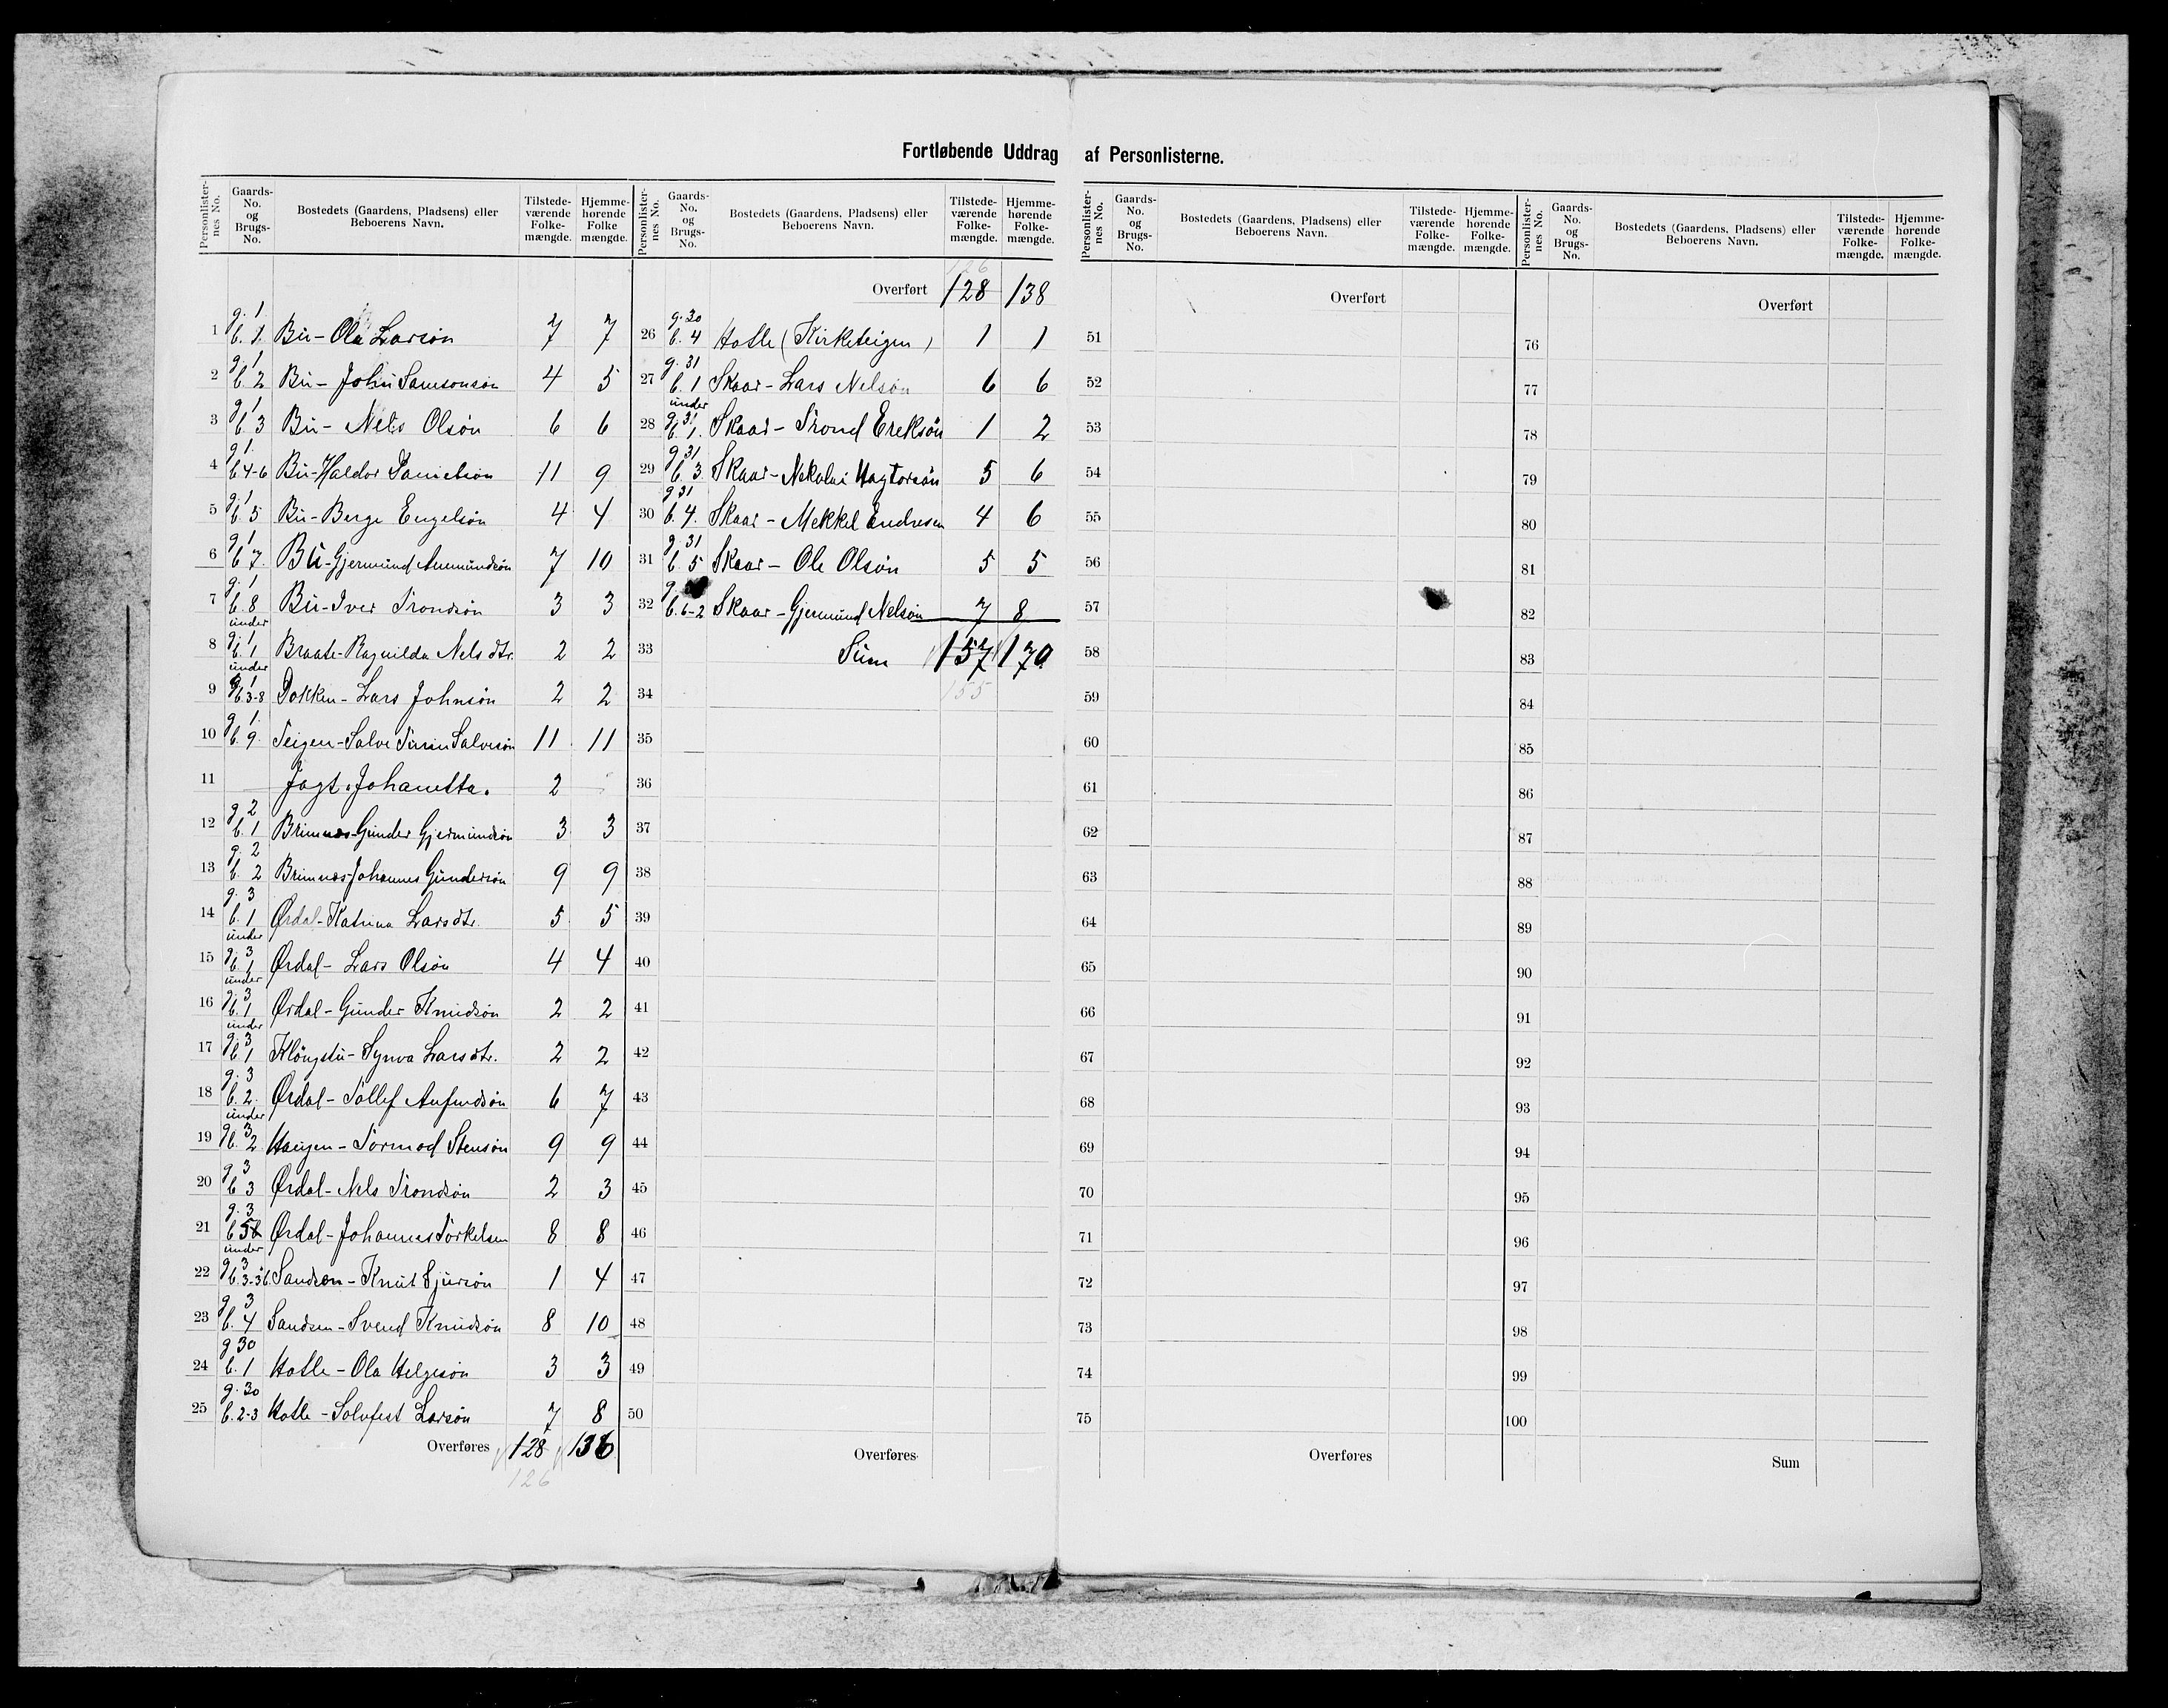 Fortløbende Uddrag af Personlisterne.
Personlister-nes No. | Gaards-No. og Brugs-No. | Bostedets (Gaardens, Pladsens) eller Beboerens Navn. | Tilstede-værende Folke-mængde. | Hjemme-hørende Folke mængde.
1 g. 1 b. 1. Bu - Ola Larsön 7 7
2 g. 1 b. 2 Bu - John Samsonsön 4 5
3 g. 1 b. 3 Bu - Nels Olsön 6 6
4 g. 1. b. 4-6 Bu - Haldor Danielsön 11 9
5 g. 1 b. 5 Bu - Berge Engelsön 4 4
6 g. 1 b. 7. Bu - Gjermund Anmundsön 7 10
7 g. 1 b. 8 Bu - Iver Trondsön 3 3
8 under g. 1 b. 1 Braate - Ragnilda Nelsdtr. 2 2
9 under g. 1 b. 3-8 Dokken - Lars Johnsön 2 2
10 g. 1. b. 9. Teigen - Salve Salvesön 11 11
11 Jagt "Johanetta". 2
12 g. 2 b. 1 Brimnæs - Gunder Gjermundsön 3 3
13 g. 2 b. 2 Brimnæs - Johannes Gundersön 9 9
14 g. 3 b. 1 Ørdal - Katrina Larsdtr. 5 5
15 under g. 3 b. 1 Ørdal - Lars Olsön 4 4
16 under g. 3 b. 1 Ørdal - Gunder Knudsön 2 2
17 under g. 3 b. 1 Klöngstu - Synva Larsdtr. 2 2
18 g. 3 b. 2. Ørdal - Tollef Anfindsön 6 7
19 under g. 3 b. 2 Haugen - Tormod Stensön 9 9
20 g. 3 b. 3 Ørdal - Nels Trondsön 2 3
21 g. 3 b. 5 Ørdal - Johannes Torkelsen 8 8
22 under g. 3 b. 3-3b. Sandsen - Knut Sjursön 1 4
23 g. 3 b. 4 Sandsen - Svend Knudsön 8 10
24 g 30 b. 1 Hotle - Ola Helgesön 3 3
25 g. 30 b. 2-3 Hotle - Solvfest Larsön 7 8
Overføres 128 138
126
Personlister-nes No. | Gaards-No. og Brugs-No. | Bostedets (Gaardens, Pladsens) eller Beboerens Navn. | Tilstede-værende Folke-mængde. | Hjemme-hørende Folke-mængde.
126
Overført 128 138
26 g. 30 b. 4 Hotle (Kirketeigen) 1 1
27 g. 31 b. 1 Skaar - Lars Nelsön 6 6
28 under g. 31 b. 1. Skaar - Trond Ereksön 1 2
29 g 31 b. 3. Skaar - Nekolai Hagtorsön 5 6
30 g 31 b. 4. Skaar - Mekkel Endresen 4 6
31 g. 31 b. 5 Skaar - Ole Olsön 5 5
32 g. b. 6-2 Skaar - Gjermund Nelsön 7 8
33 Sum 157 170
34 155
35
36
37
38
39
40
41
42
43
44
45
46
47
48
49
50
Overføres
Personlister-nes No. | Gaards-No. og Brugs-No. | Bostedets (Gaardens, Pladsens) eller Beboerens Navn. | Tilstede-værende Folke-mængde. | Hjemme-hørende Folke-mængde.
Overført
51
52
53
54
55
56
57
58
59
60
61
62
63
64
65
66
67
68
69
70
71
72
73
74
75
Overføres
Personlister-nes No. | Gaards-No. og Brugs-No. | Bostedets (Gaardens, Pladsens) eller Beboerens Navn. | Tilstede-værende Folke-mængde. | Hjemme-hørende Folke-mængde.
Overført
76
77
78
79
80
81
82
83
84
85
86
87
88
89
90
91
92
93
94
95
96
97
98
99
100
Sum